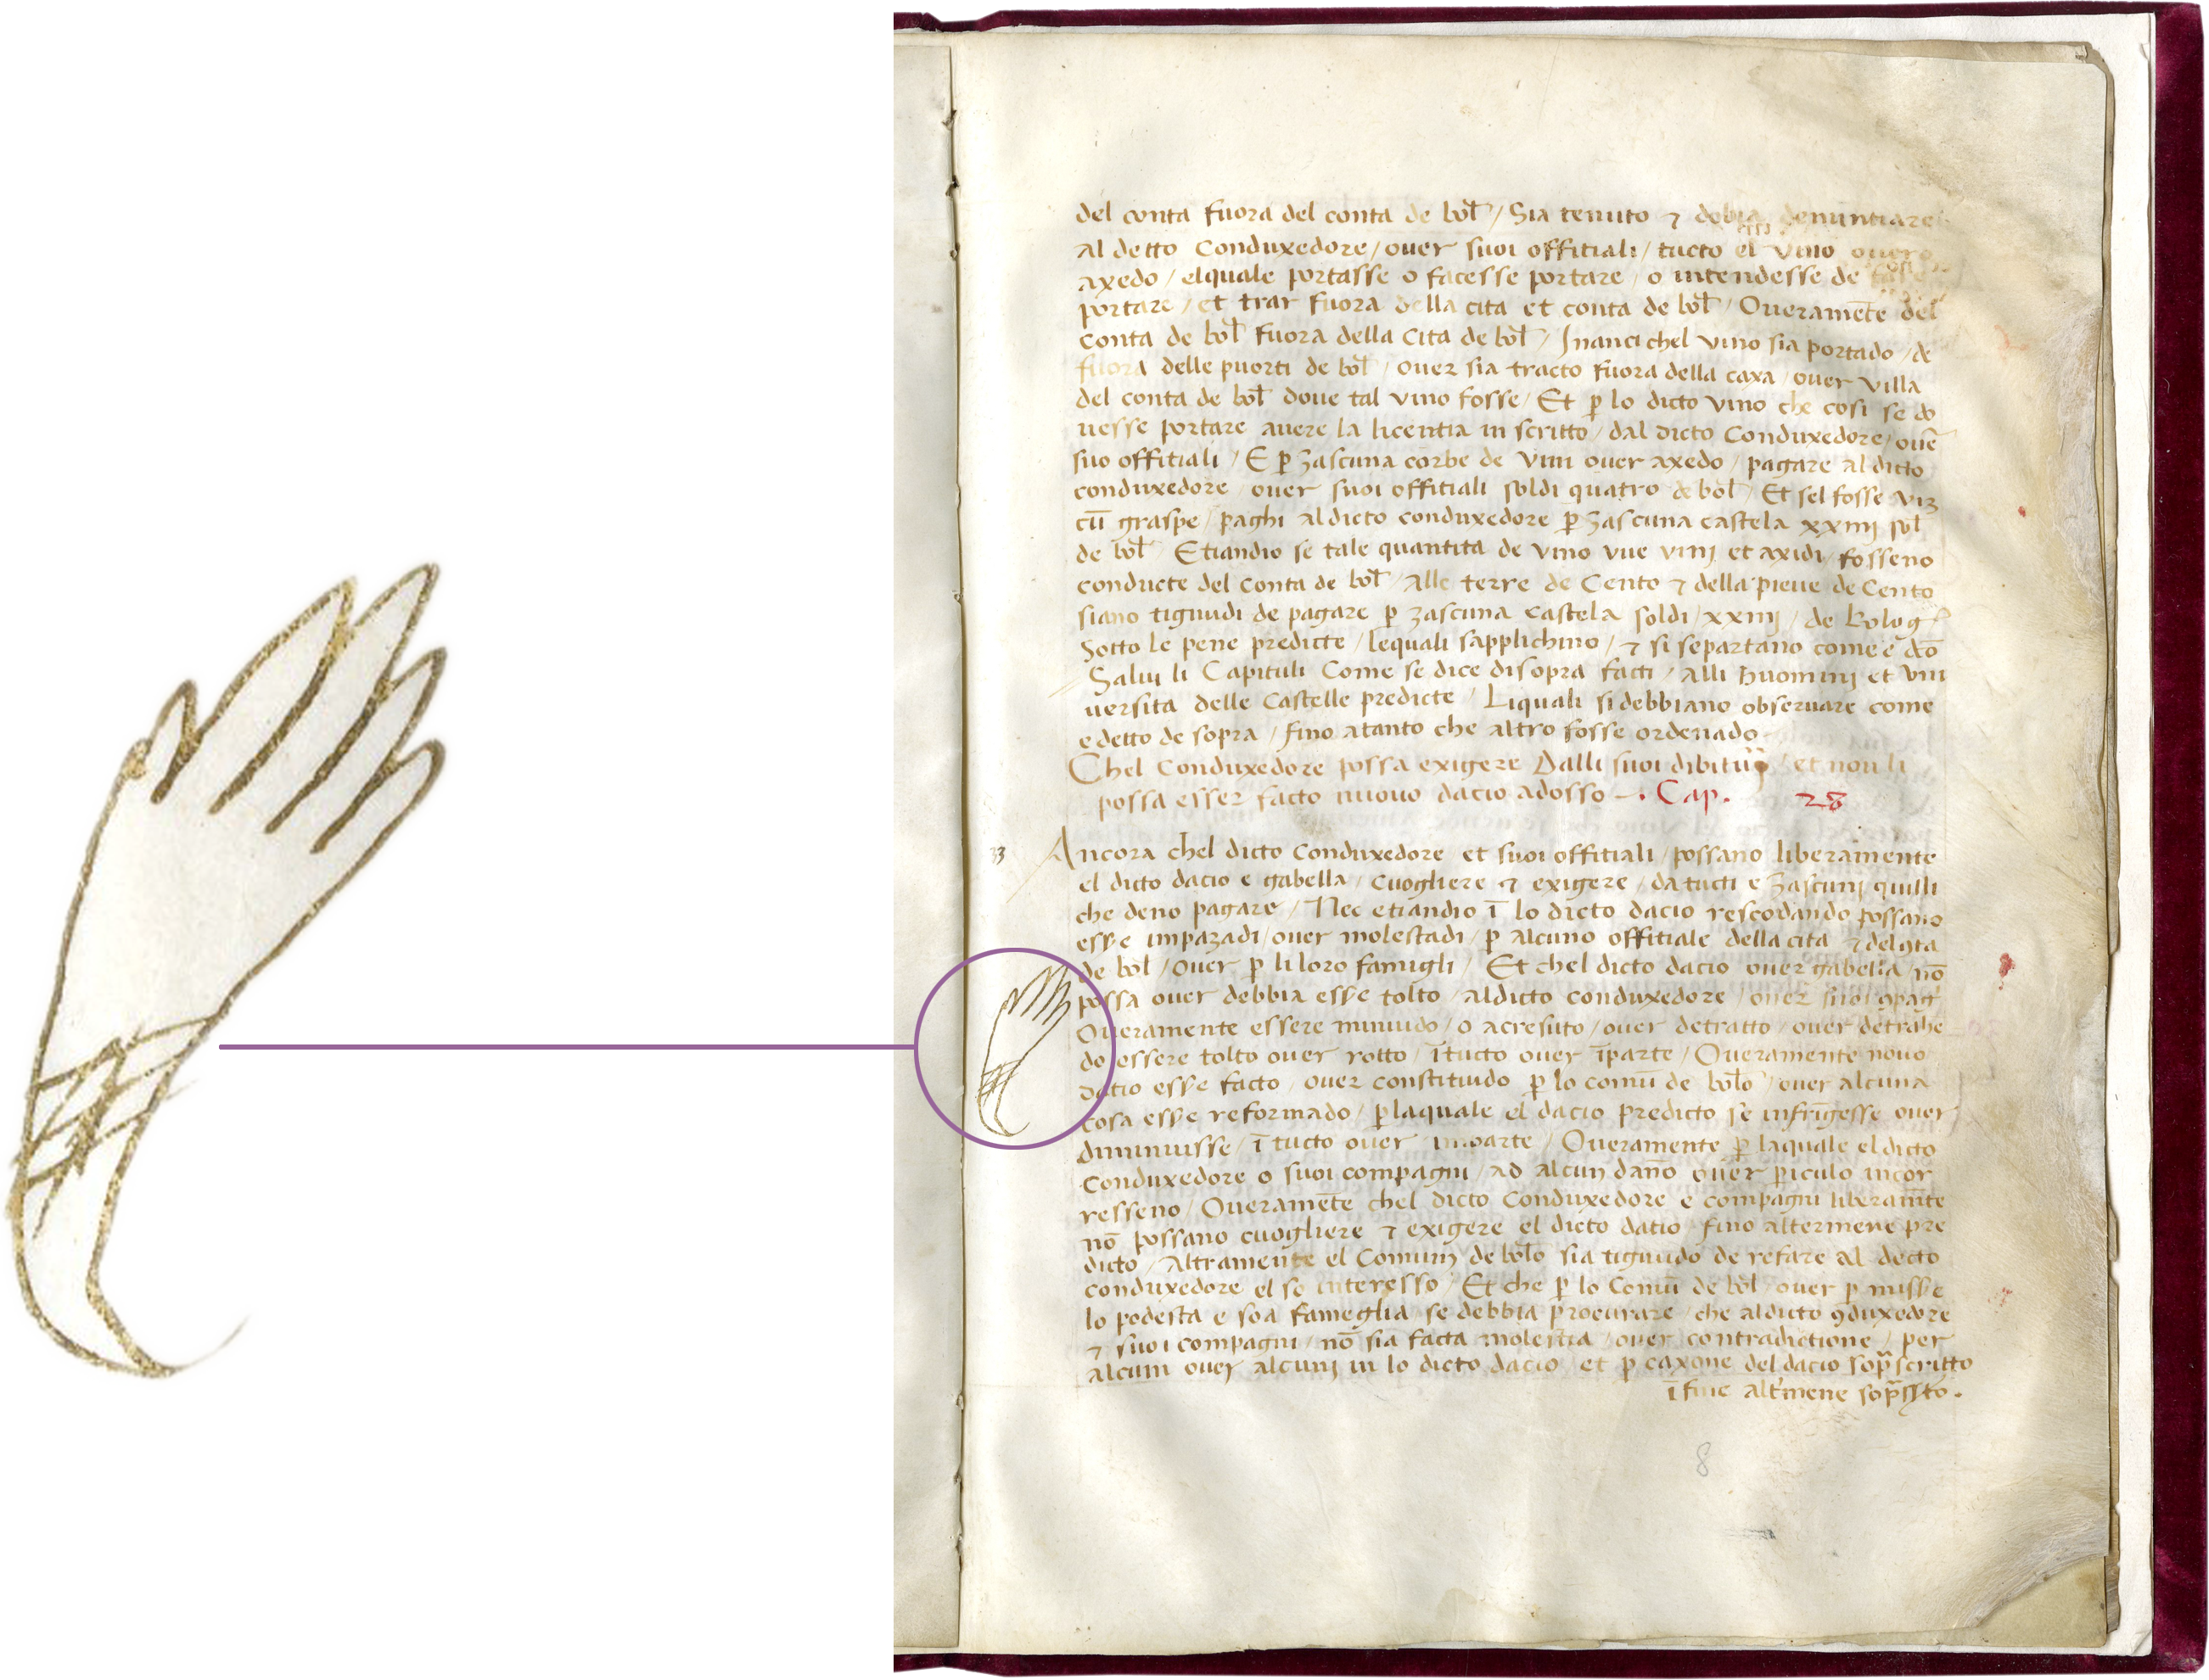 del conta fuora del conta de bol / Sia tenuto ⁊ debia denuntiare
al detto Conduxedore / ouer suoi offitiali / tucto el vino ouero
axedo / elquale portasse o facesse portare / o intendesse de
portare / et trar fuora della cita et conta de bol / Oueramēte del
conta de bol fuora della Cita de bol / Inanci chel vino sia portado / de
fuora delle puorti de bol / ouer sia tracto fuora della caxa / ouer villa
del conta de bol doue tal vino fosse / Et p lo dicto vino che cosi se do
uesse portare auere la licentia in scritto / dal dicto Conduxedore / ouē
suo offitiali / E p zascuna corbe de vin ouer axedo / pagare al dicto
conduxedore ouer suoi offitiali soldi quatro de bol / Et sel fosse
cū graspe / paghi aldicto conduxedore p zascuna castela xxiiij sol
de bol Etiandio se tale quantita de vino vue vinj et axidi / fosseno
conducte del conta de bol / alle terre de Cento ⁊ della pieue de Cento
siano tignudi de pagare p zascuna castela soldi / xxiiij / de Bolog
Sotto le pene predicte / lequali sapplichino / ⁊ si separtano come e dcō
Salui li Capituli Come se dice disopra facti / alli huominj et vni
uersita delle Castelle predicte / Liquali sidebbiano obseruare come
e detto de sopra / fino atanto che altro fosse ordenado
Chel Conduxedore possa exigere Dalli suoi / et non li
possa esser facto nuouo dacio adosso - . Cap. 28
33
Ancora chel dicto Conduxedore et suoi offitiali / possano liberamente
el dicto dacio e gabella / cuogliere ⁊ exigere / da tucti e zascunj quilli
che deno pagare / Nec etiandio ī lo dicto dacio rescodando possano
esse impazadi / ouer molestadi / p alcuno offitiale della cita ⁊ del
de bol / ouer p li loro famigli / Et chel dicto dacio ouer gabella nō
possa ouer debbia esse tolto / aldicto conduxedore / ouer suoi
Oueramente essere minuido / o acresuto / ouer detratto / ouer detrahe
do essere tolto ouer rotto / ītucto ouer īparte / Oueramente nouo
datio esse facto / ouer constituido p lo comū de bolō / ouer alcuna
cosa esse reformado / plaquale el dacio predicto se infrīgesse ouer
diminuisse / ī tucto ouer inparte / Oueramente p laquale el dicto
Conduxedore o suoi compagni / ad alcun danno ouer piculo incor
resseno / Oueramēte chel dicto Conduxedore e compagni liberamēte
nō possano cuogliere ⁊ exigere el dicto datio fino altermene pre
dicto / Altramente el Comun de bolo sia tignudo de refare al decto
conduxedore el so interesso / Et che p lo Comū de bol ouer p
lo podesta e soa fameglia se debbia procurare / che aldicto ꝯduxedore
⁊ suoi compagni / nō sia facta molestia / ouer contradictione / per
alcun ouer alcunj in lo dicto dacio / et p caxone del dacio soprascritto
ī fine altmene
8